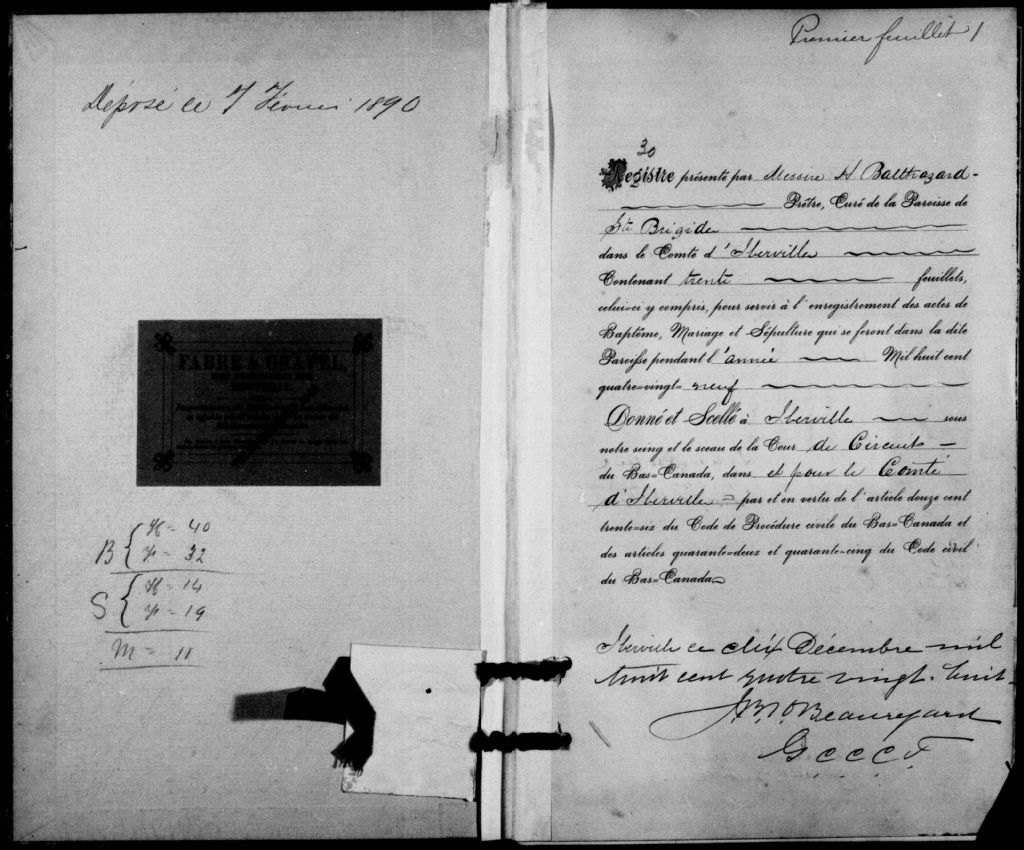 Déposé ce 7 Février 1890
FABRE & GRAVEL,
B { H = 40
F = 32
S { H = 14
F = 19
M = 11
Premier feuillet 1
30
Registre présenté par Messire H Balthazard-
Prêtre, Curé de la Paroisse de
Ste Brigide
dans le Comté d'Iberville
Contenant trente feuillets,
celui=ci y compris, pour servir à l'enregistrement des actes de
Baptême, Mariage et Sépulture qui se feront dans la dite
Paroisse pendant l'année Mil huit cent
quatre=vingt= neuf
Donné et Scellé à Iberville sous
notre seing et le sceau de la Cour de Circuit -
du Bas=Canada, dans et pour le Comté
d'Iberville = par et en vertu de l'article douze cent
trente=six du Code de Procédure civile du Bas=Canada et
des articles quarante=deux et quarante=cinq du Code civil
du Bas=Canada
Iberville ce dix Décembre mil
huit cent quatre vingt. huit-
Beauregard
G.C.C.C.I.